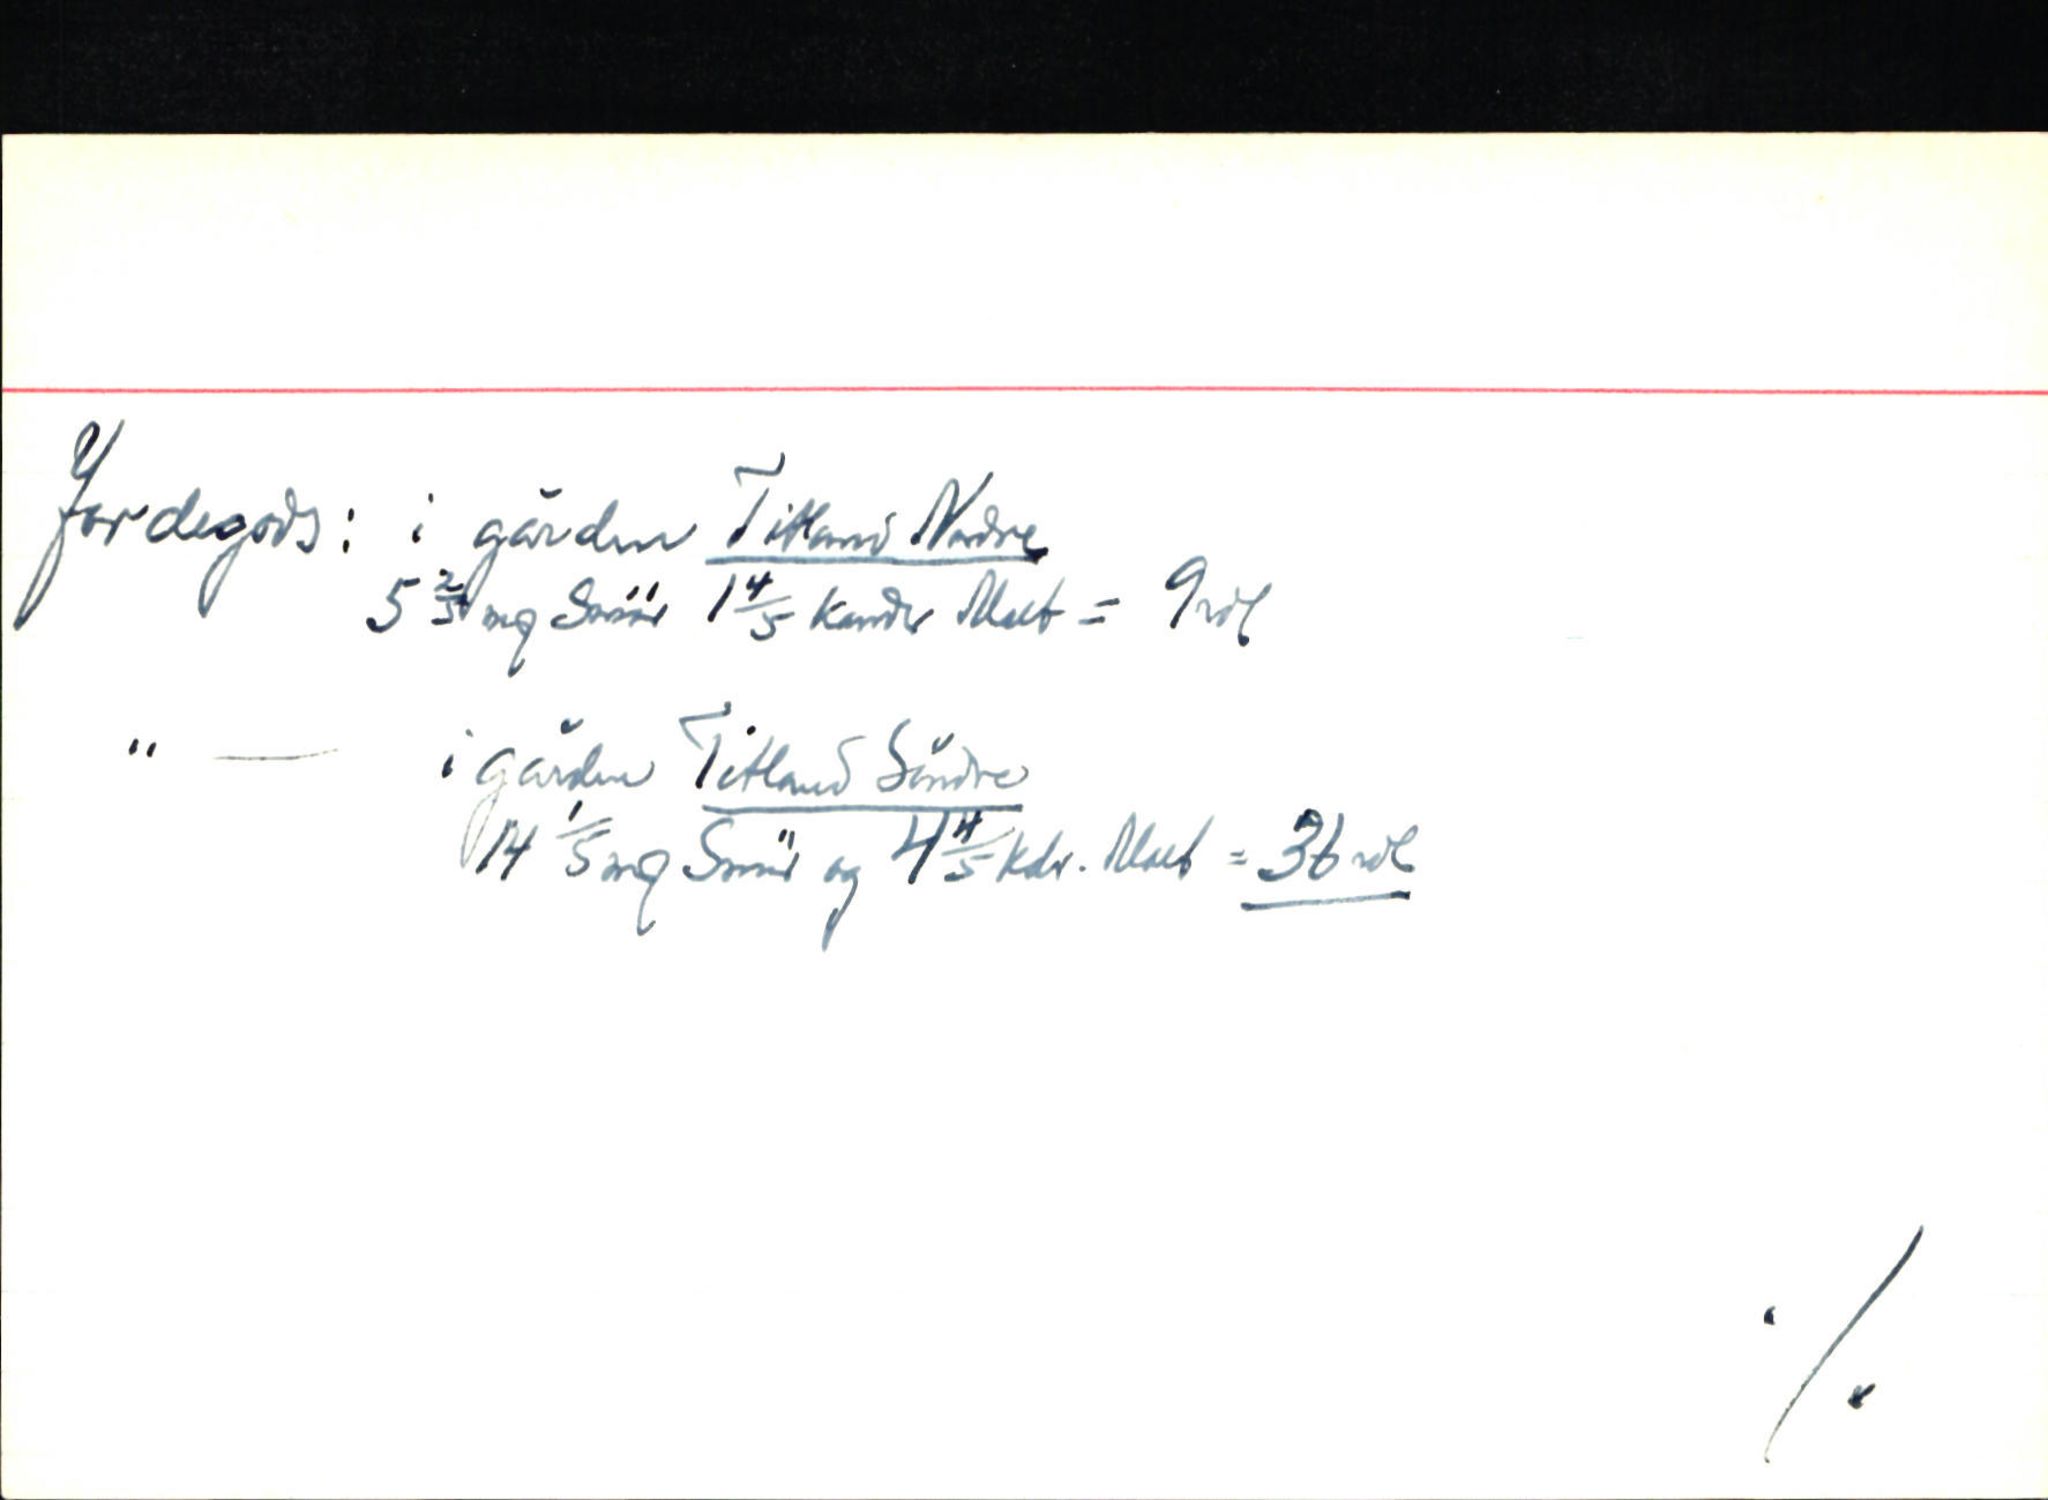 Jordegods: i gården Titland Nordre
5 2/5 mg Smöör 1 4/5 Kander Malt = 9 rdl
" — i gården Titland Söndre
14 1/5 mg Smör og 4 4/5 Kdr. Malt = 36 rdl
./.